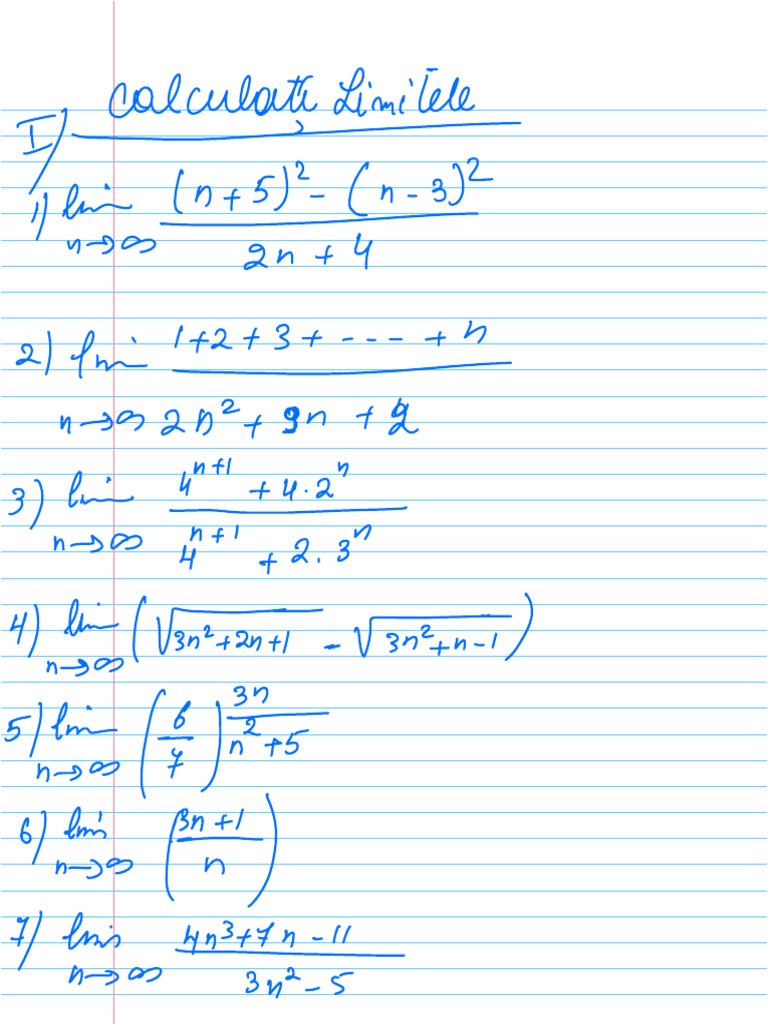 Calculati Limitele
I)
1) lim n→∞ ((n+5)² - (n-3)²) / (2n+4)
2) lim n→∞ (1+2+3+----+n) / (2n²+9n+2)
3) lim n→∞ (4^(n+1) + 4·2^n) / (4^(n+1) + 2·3^n)
4) lim n→∞ (√(3n²+2n+1) - √(3n²+n-1))
5) lim n→∞ (6/7)^(3n/(n²+5))
6) lim n→∞ ((3n+1)/n)
7) lim n→∞ (4n³+7n-11) / (3n²-5)